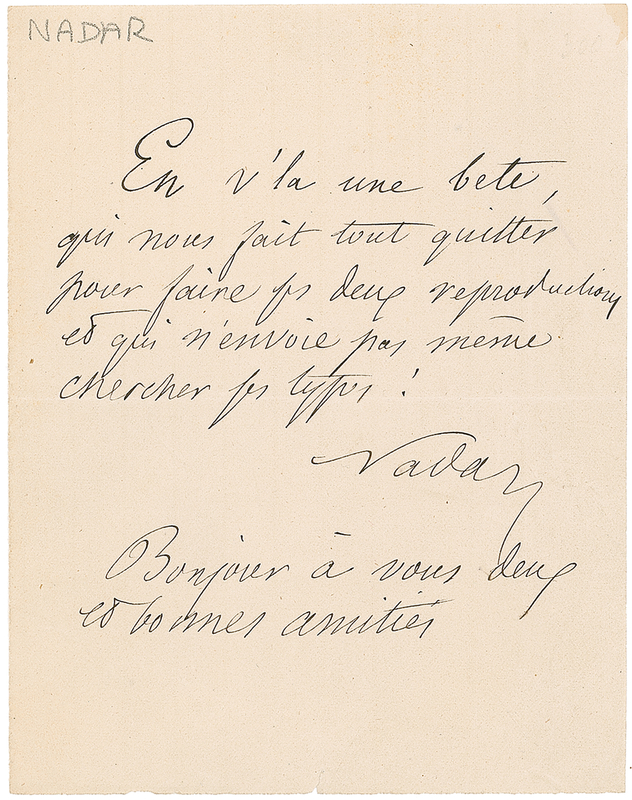 NADAR
En v'la une bete,
qui nous fait tout quitter
pour faire ses deux reproductions
et qui n'envoie pas même
chercher ses types !
Nadar
Bonjour à vous deux
et bonnes amitiés